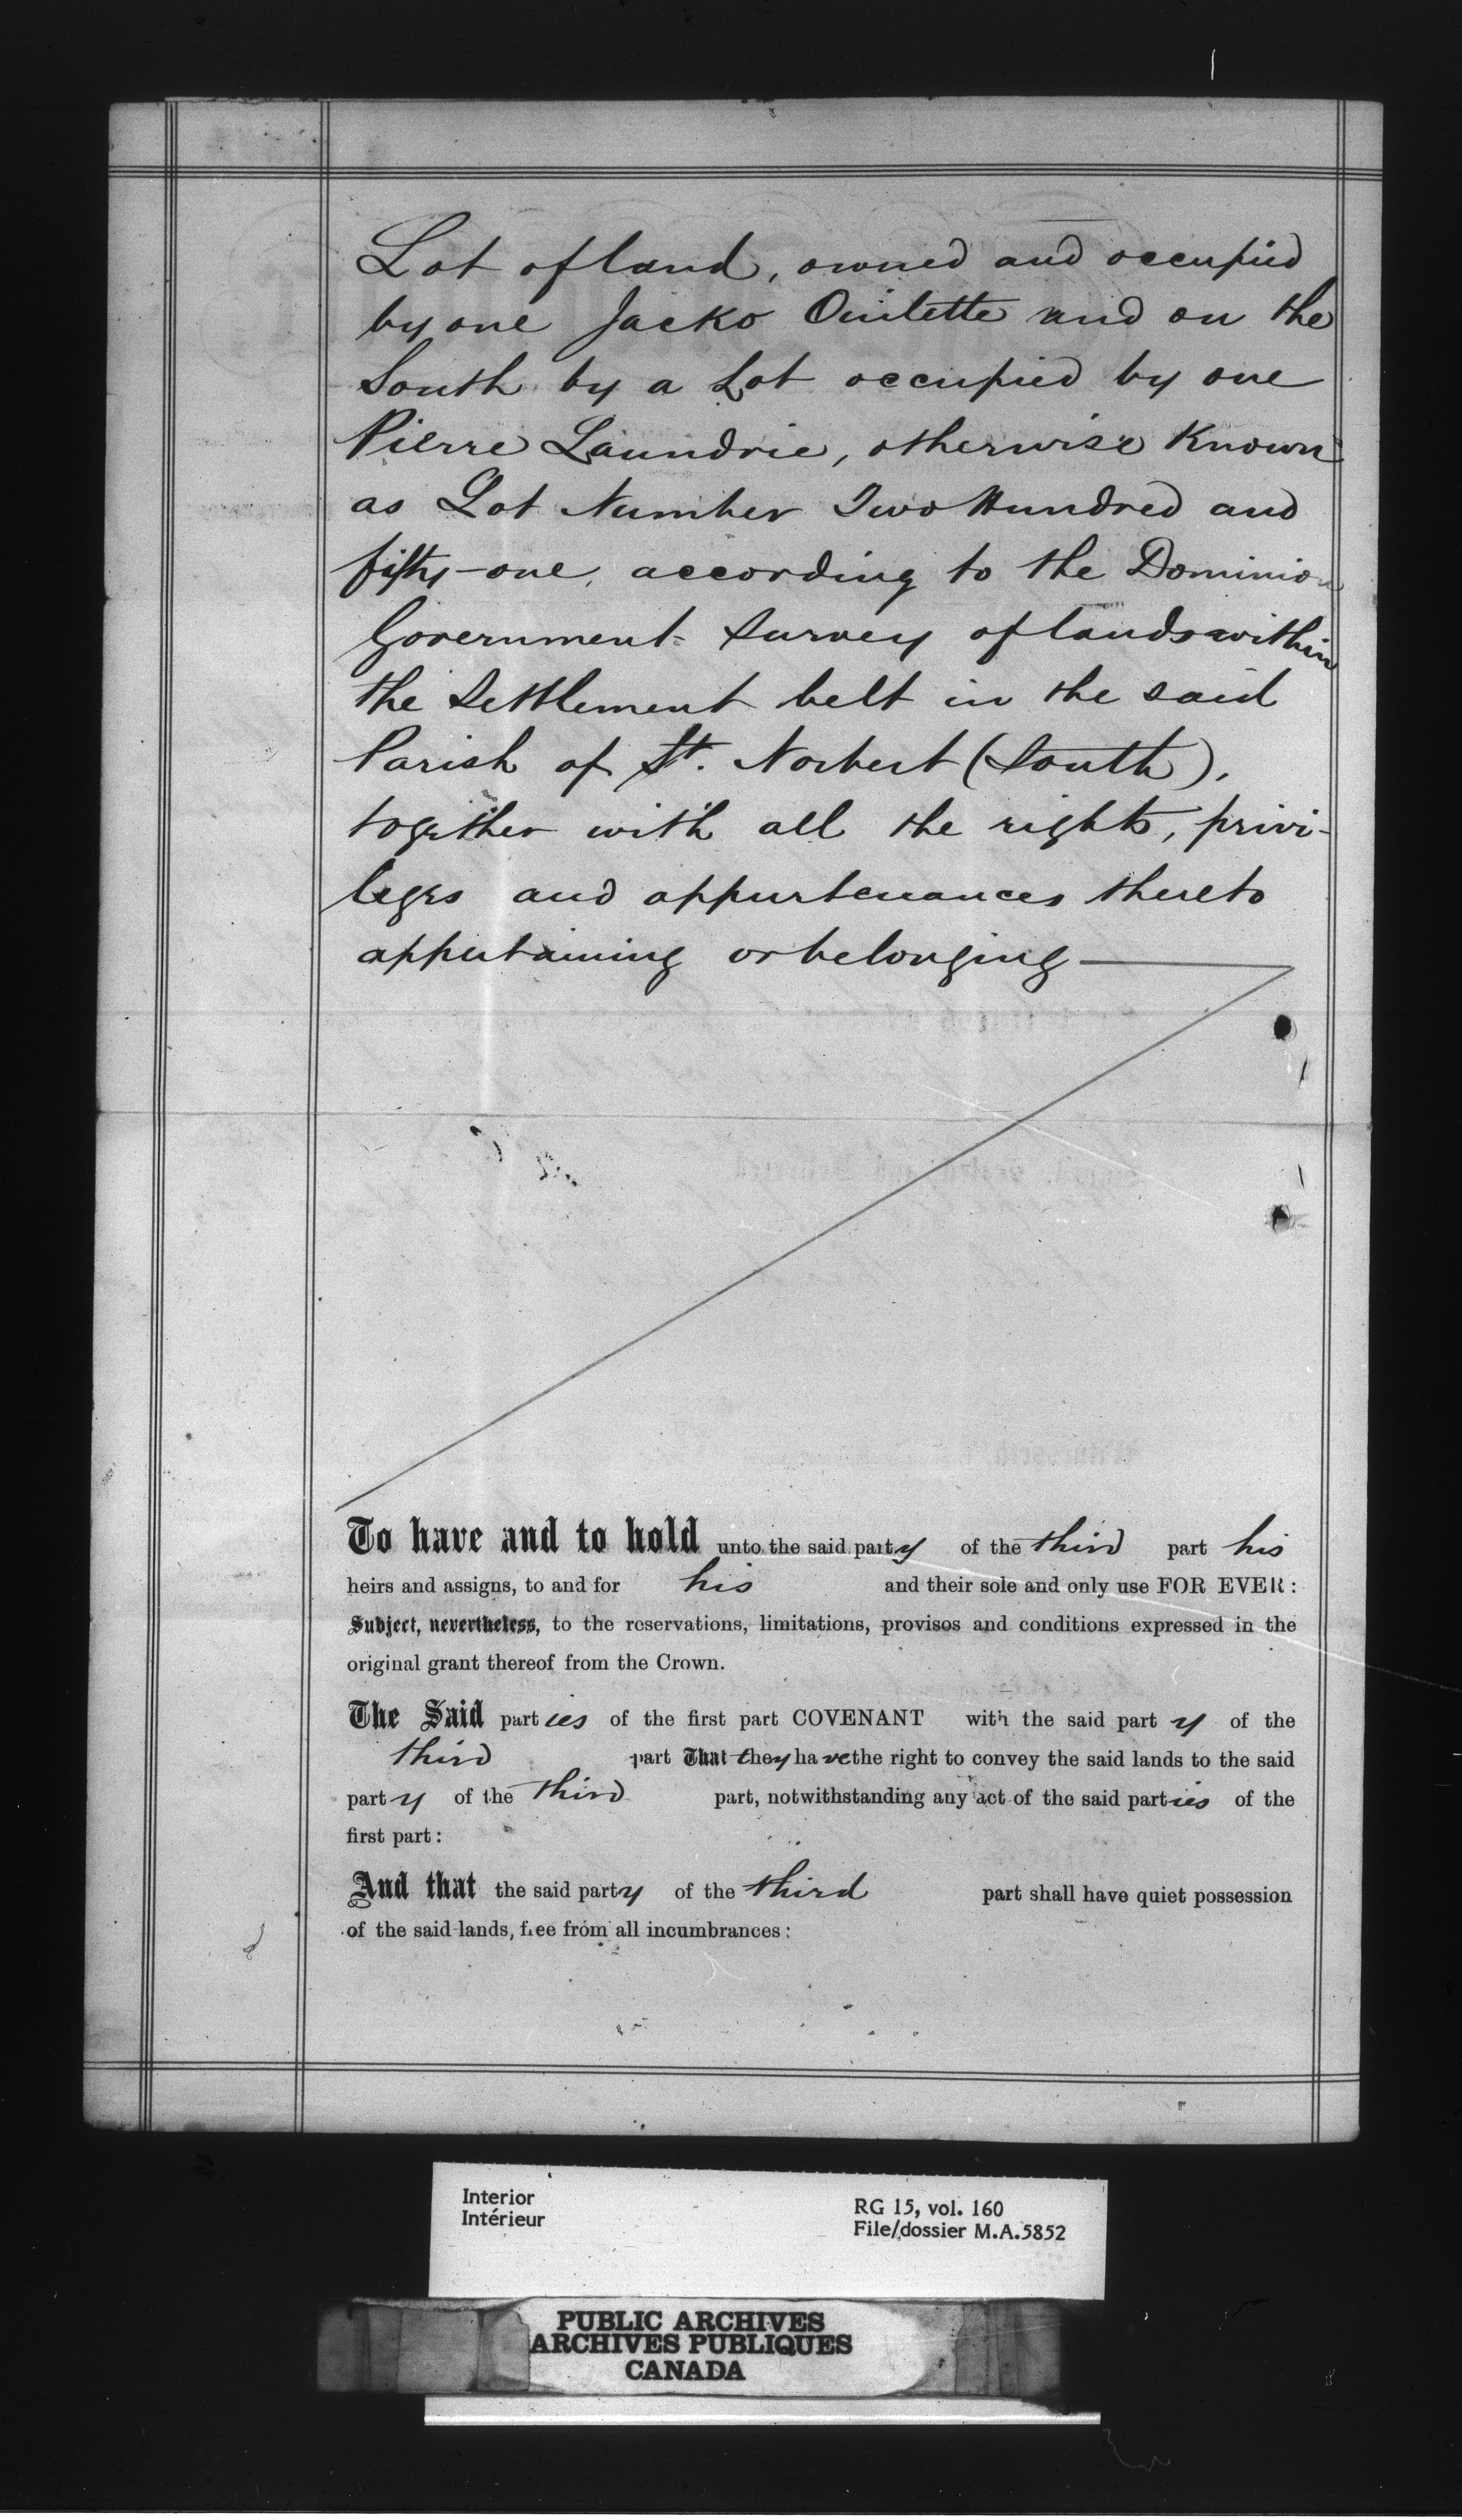 Lot of land, owned and occupied
by one Jacko Ouilette and on the
South by a Lot occupied by one
Pierre Laundrie, otherwise Known
as Lot Number Two Hundred and
fifty-one, according to the Dominion
Government Survey of lands within
the Settlement belt in the said
Parish of St. Norbert (South),
together with all the rights, privi-
leges and appurtenances thereto
appertaining or belonging
To have and to hold unto the said party of the third part his
heirs and assigns, to and for his and their sole and only use FOR EVER:
Subject, nevertheless, to the reservations, limitations, provisos and conditions expressed in the
original grant thereof from the Crown.
The Said parties of the first part COVENANT with the said party of the
third part That they have the right to convey the said lands to the said
party of the third part, notwithstanding any act of the said parties of the
first part:
And that the said party of the third part shall have quiet possession
of the said lands, free from all incumbrances:
Interior
Intérieur
RG 15, vol. 160
File/dossier M.A.5852
PUBLIC ARCHIVES
ARCHIVES PUBLIQUES
CANADA